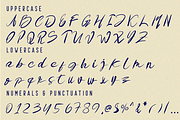 UPPERCASE
ABCDEFGHIJKLMN
OPQRSTUVWXYZ
LOWERCASE
abcdefghijklm
nopqrstuvwxyz
NUMERALS & PUNCTUATION
0123456789